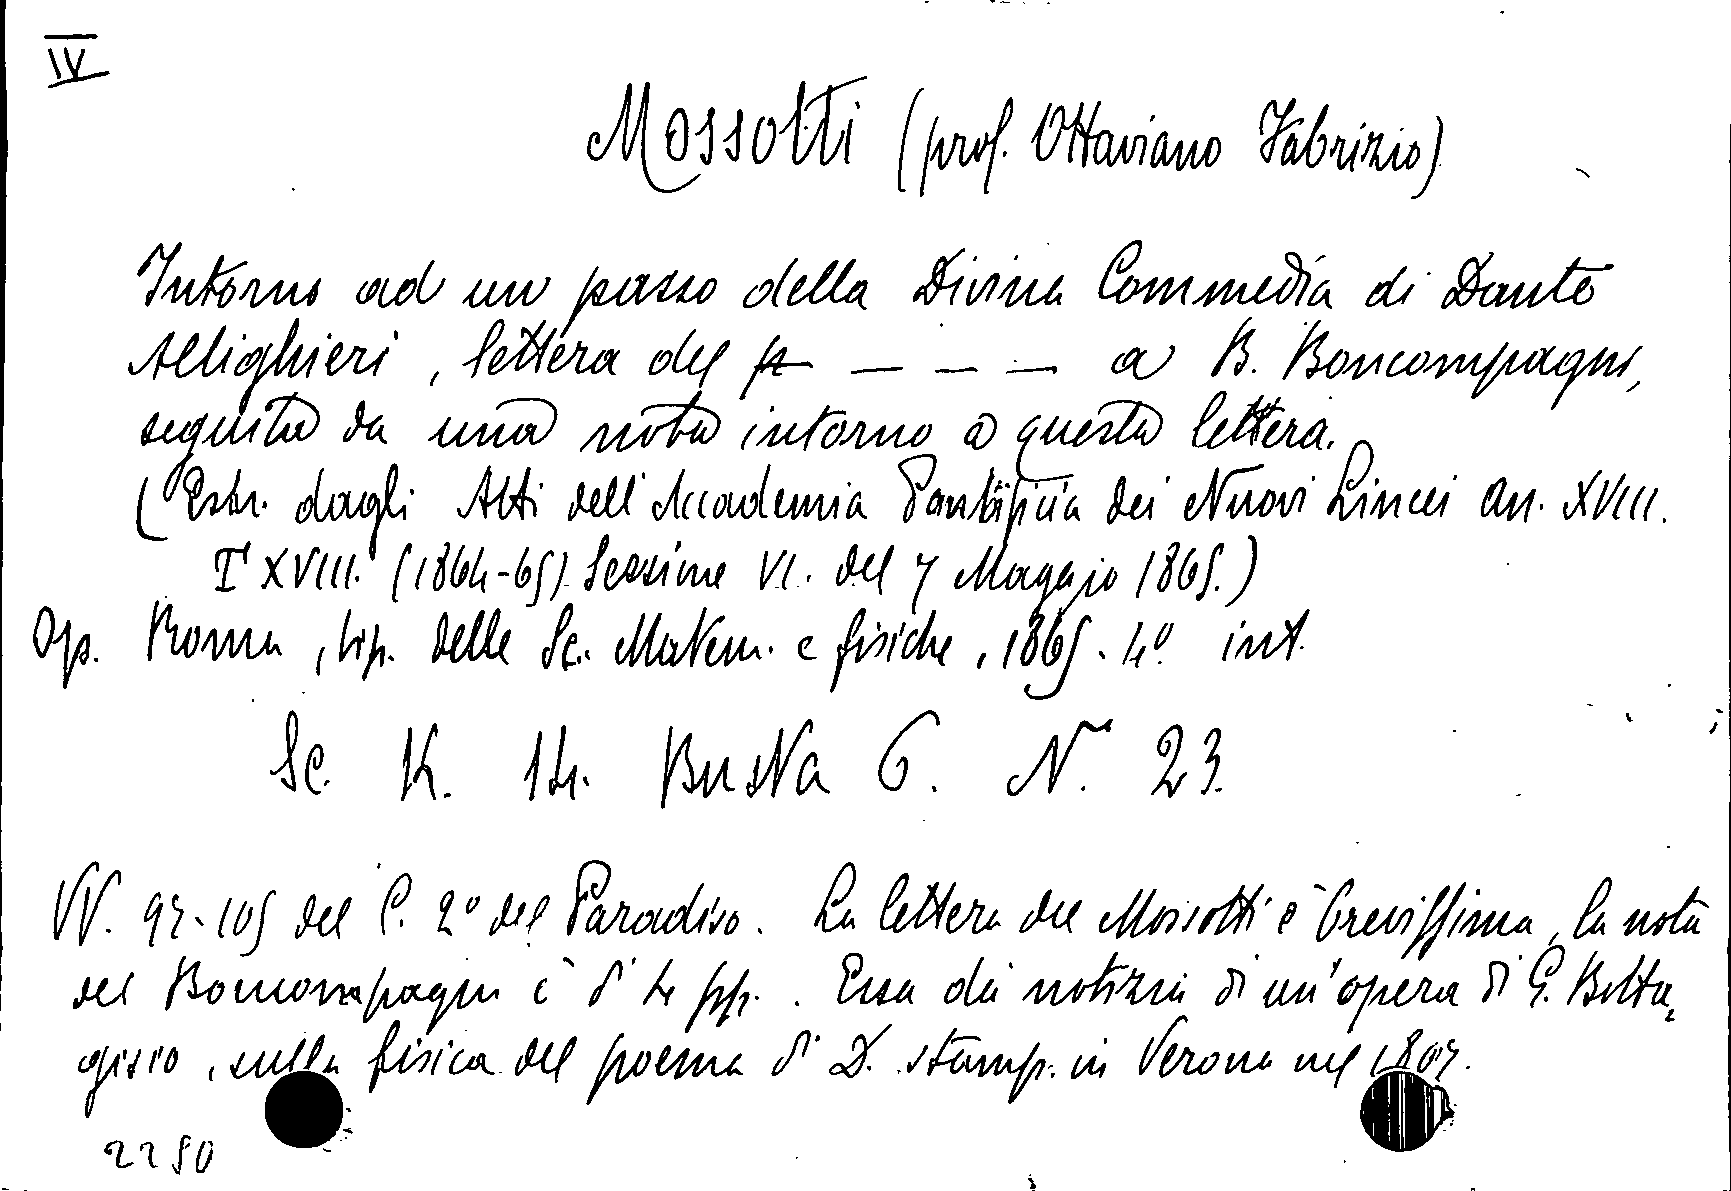 IV
Mossotti (prof. Ottaviano Fabrizio)
Intorno ad un passo della Divina Commedia di Dante
Allighieri, lettera del p — — — — a B. Boncompagni,
seguita da una nota intorno a questa lettera.
(Estr. dagli Atti dell'Accademia Pontificia dei Nuovi Lincei An. XVIII.
T XVIII. (1864-65). Sessione VI. del 7 Maggio 1865.)
Op. Roma, tip. delle Sc. Matem. e fisiche, 1865. 4º. int.
Sc. K. 14. Busta 6. N. 23.
VV. 97-105 del C. 2º del Paradiso. La lettera del Mossotti è brevissima, la nota
del Boncompagni è di 4 pp. Essa dà notizia di un'opera di G. Botta-
gisio, sulla fisica del poema di D. stamp. in Verona nel 1807.
2250